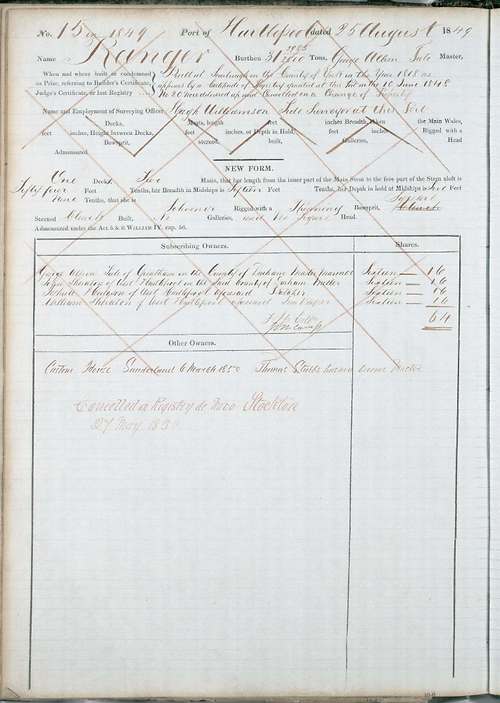 No. 15 in 1849 Port of Hartlepool dated 25 August 1849
Name Ranger Burthen 31 Tons, George Allen Tate Master,
When and where built or condemned
as Prize, referring to Builder's Certificate,
Judge's Certificate, or last Registry
Built at in the County of York in the Year 1818 as
appears by a Certificate of Registry granted at this Port the 10 June 1848
No 20 now delivered up and Cancelled on a Change of Property
Name and Employment of Surveying Officer Hugh Williamson Tide Surveyor at this Port
Decks, Masts, length feet inches Breadth Above the Main Wales,
feet inches, Height between Decks, feet inches, or Depth in Hold, feet inches, Rigged with a
Bowsprit, sterned, built, Galleries, Head
Admeasured
NEW FORM.
One Decks, Two Masts, that her length from the inner part of the Main Stem to the fore part of the Stern aloft is
Fifty four Feet Tenths, her Breadth in Midships is Fifteen Feet Tenths, her Depth in hold at Midships is Feet
nine Tenths, that she is Schooner Rigged with a Standing Bowsprit, Square
Sterned Clench Built, No Galleries, and No Figure Head.
Admeasured under the Act 5 & 6 WILLIAM IV. cap. 56.
Subscribing Owners. Shares.
George Allen Tate of Greatham in the County of Durham Master Mariner Sixteen — 16
John of West Hartlepool in the said County of Durham Sixteen — 16
Henderson of West Hartlepool aforesaid Sixteen — 16
William of West Hartlepool aforesaid Sixteen — 16
64
Other Owners.
Custom House Sunderland 6 March 1850 Thomas Stubbs Master
Cancelled & Registry de Novo Stockton
27 May 1850